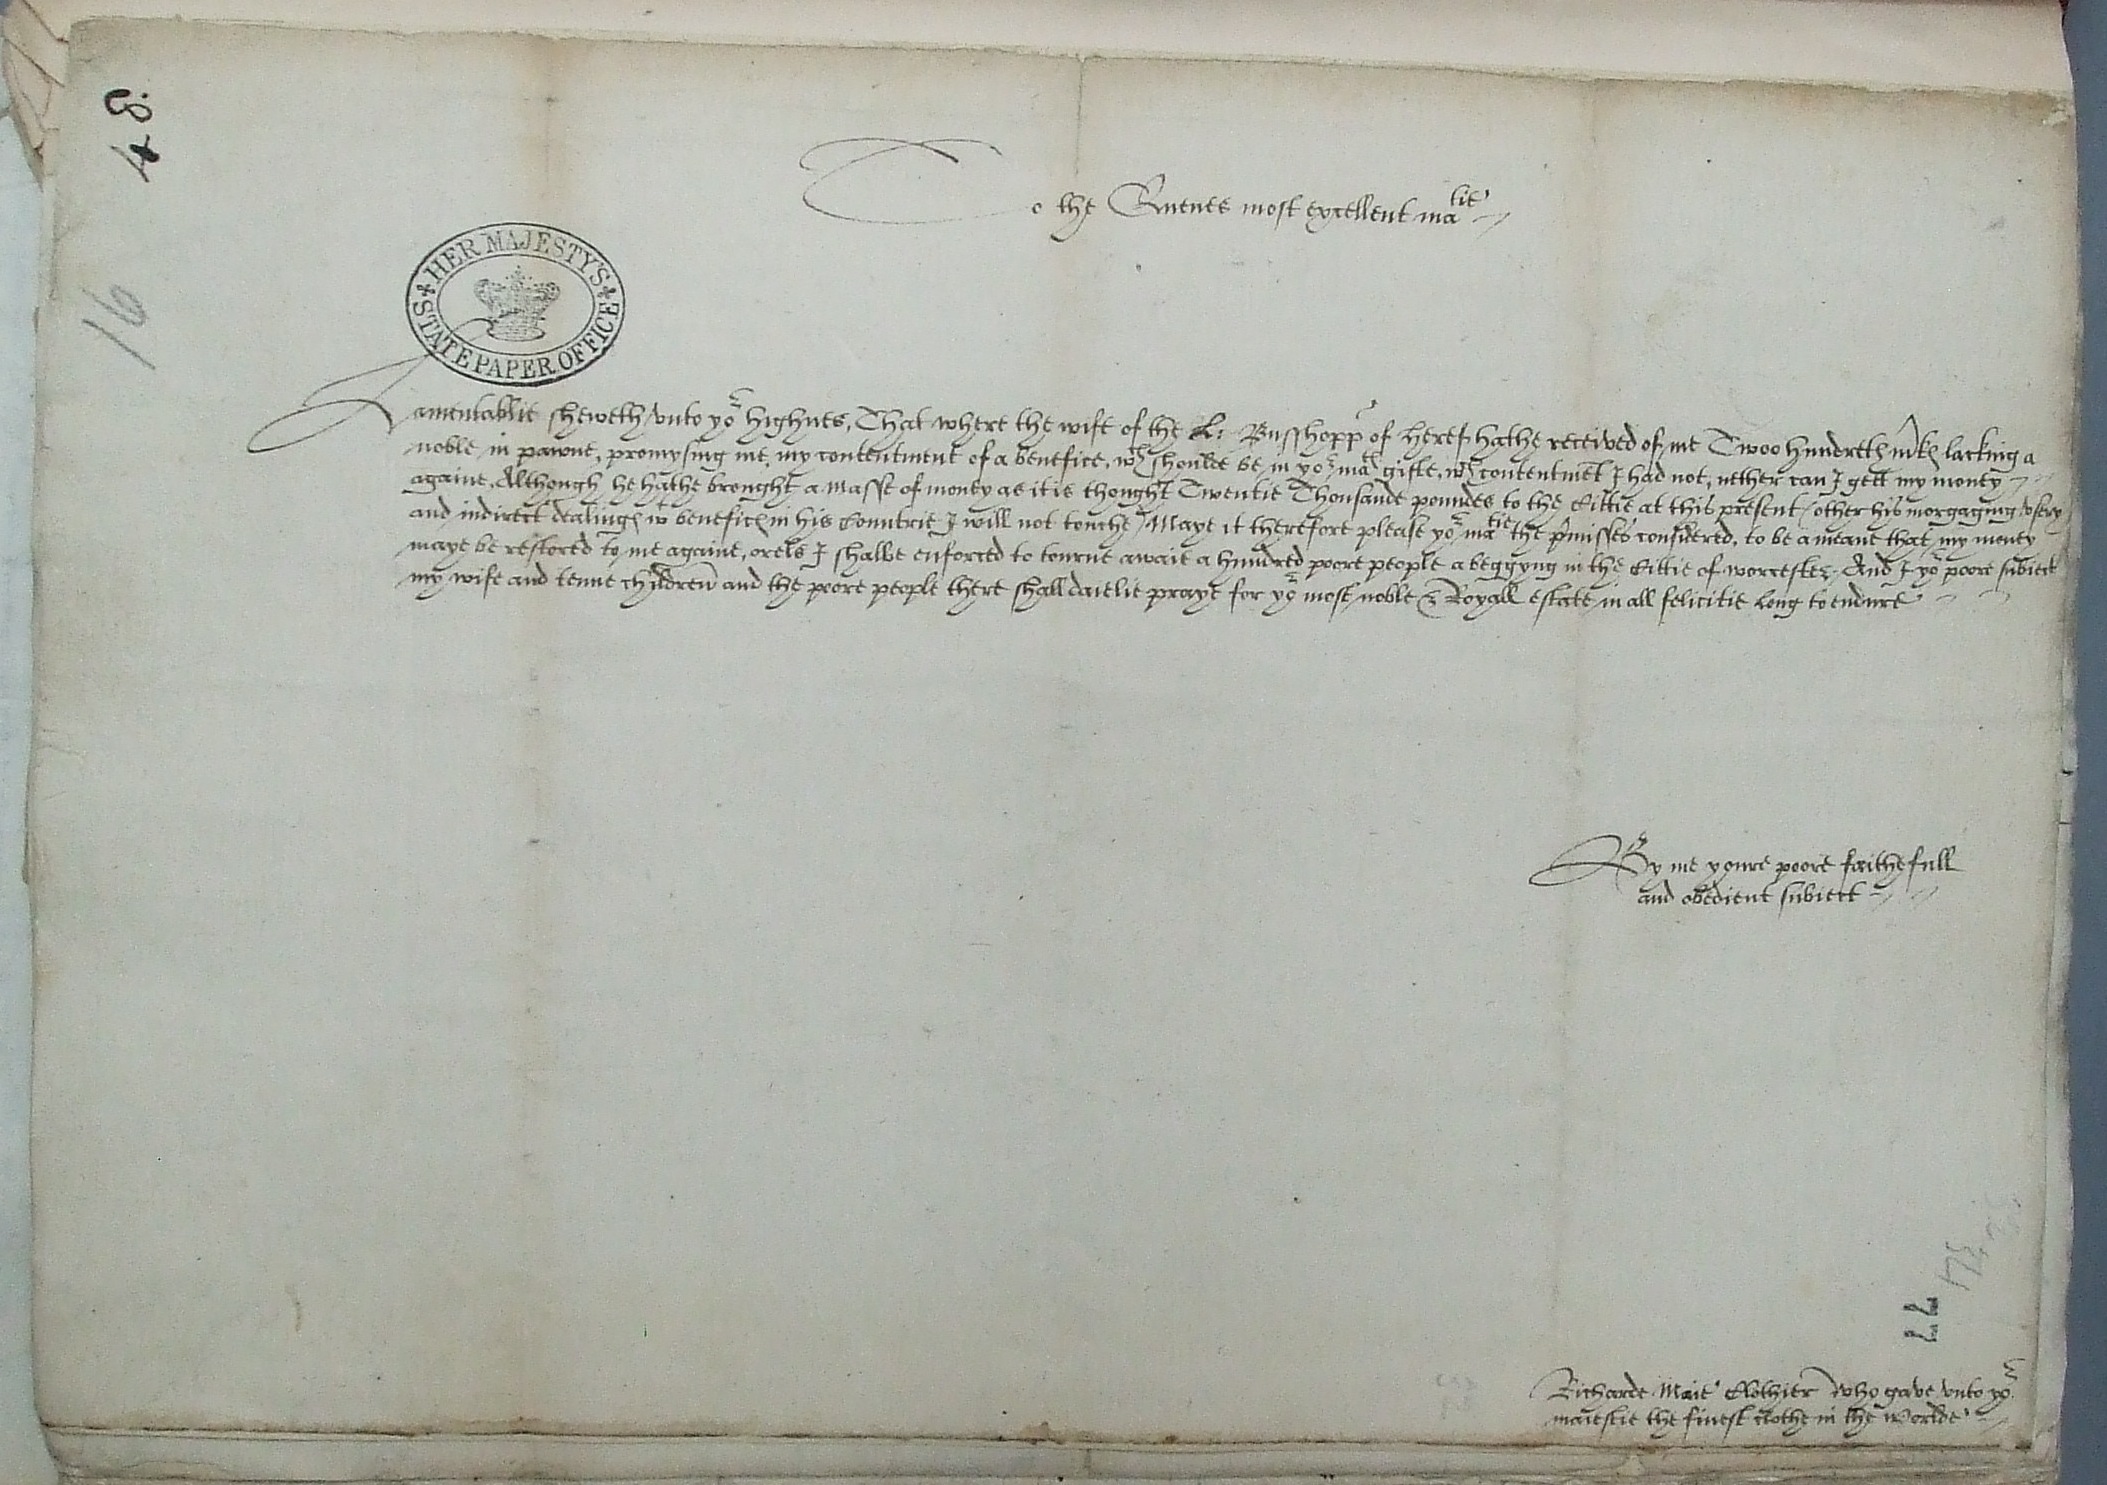 48.
16
To the Quenes most excellent ma^tie
HER MAJESTY'S
STATE PAPER OFFICE
Lamentablie sheweth vnto yo^r highnes, That where the wife of the L: Busshopp of Heref hathe received of me Twoo hundreth m^rk lacking a
noble in pawne, promysing me my contentment of a benefice, w^ch shoulde be in yo^r ma^ts gifte, w^ch contentmet I had not, nether can I gett my money
againe, Although he hathe brought a masse of money as it is thought Twentie Thousande poundes to the Cittie at this present / other his morgaging vsery
and indirect dealing w^t benefic in his Countrie I will not touche / Maye it therefore please yo^r ma^tie the p^rmisses considered, to be a meane that my money
maye be restored to me againe, orels I shalbe enforced to tourne awaie a hundred poore people a beggyng in the Cittie of worcester, And I yo^r poore subiect
my wife and tenne children and the poore people there shall daielie praye for yo^r most noble & Royall estate in all felicitie long to endure
By me youre poore faithefull
and obedient subiect
77
Richarde Maie Clothier who gave vnto yo^r
maiestie the finest clothe in the worlde